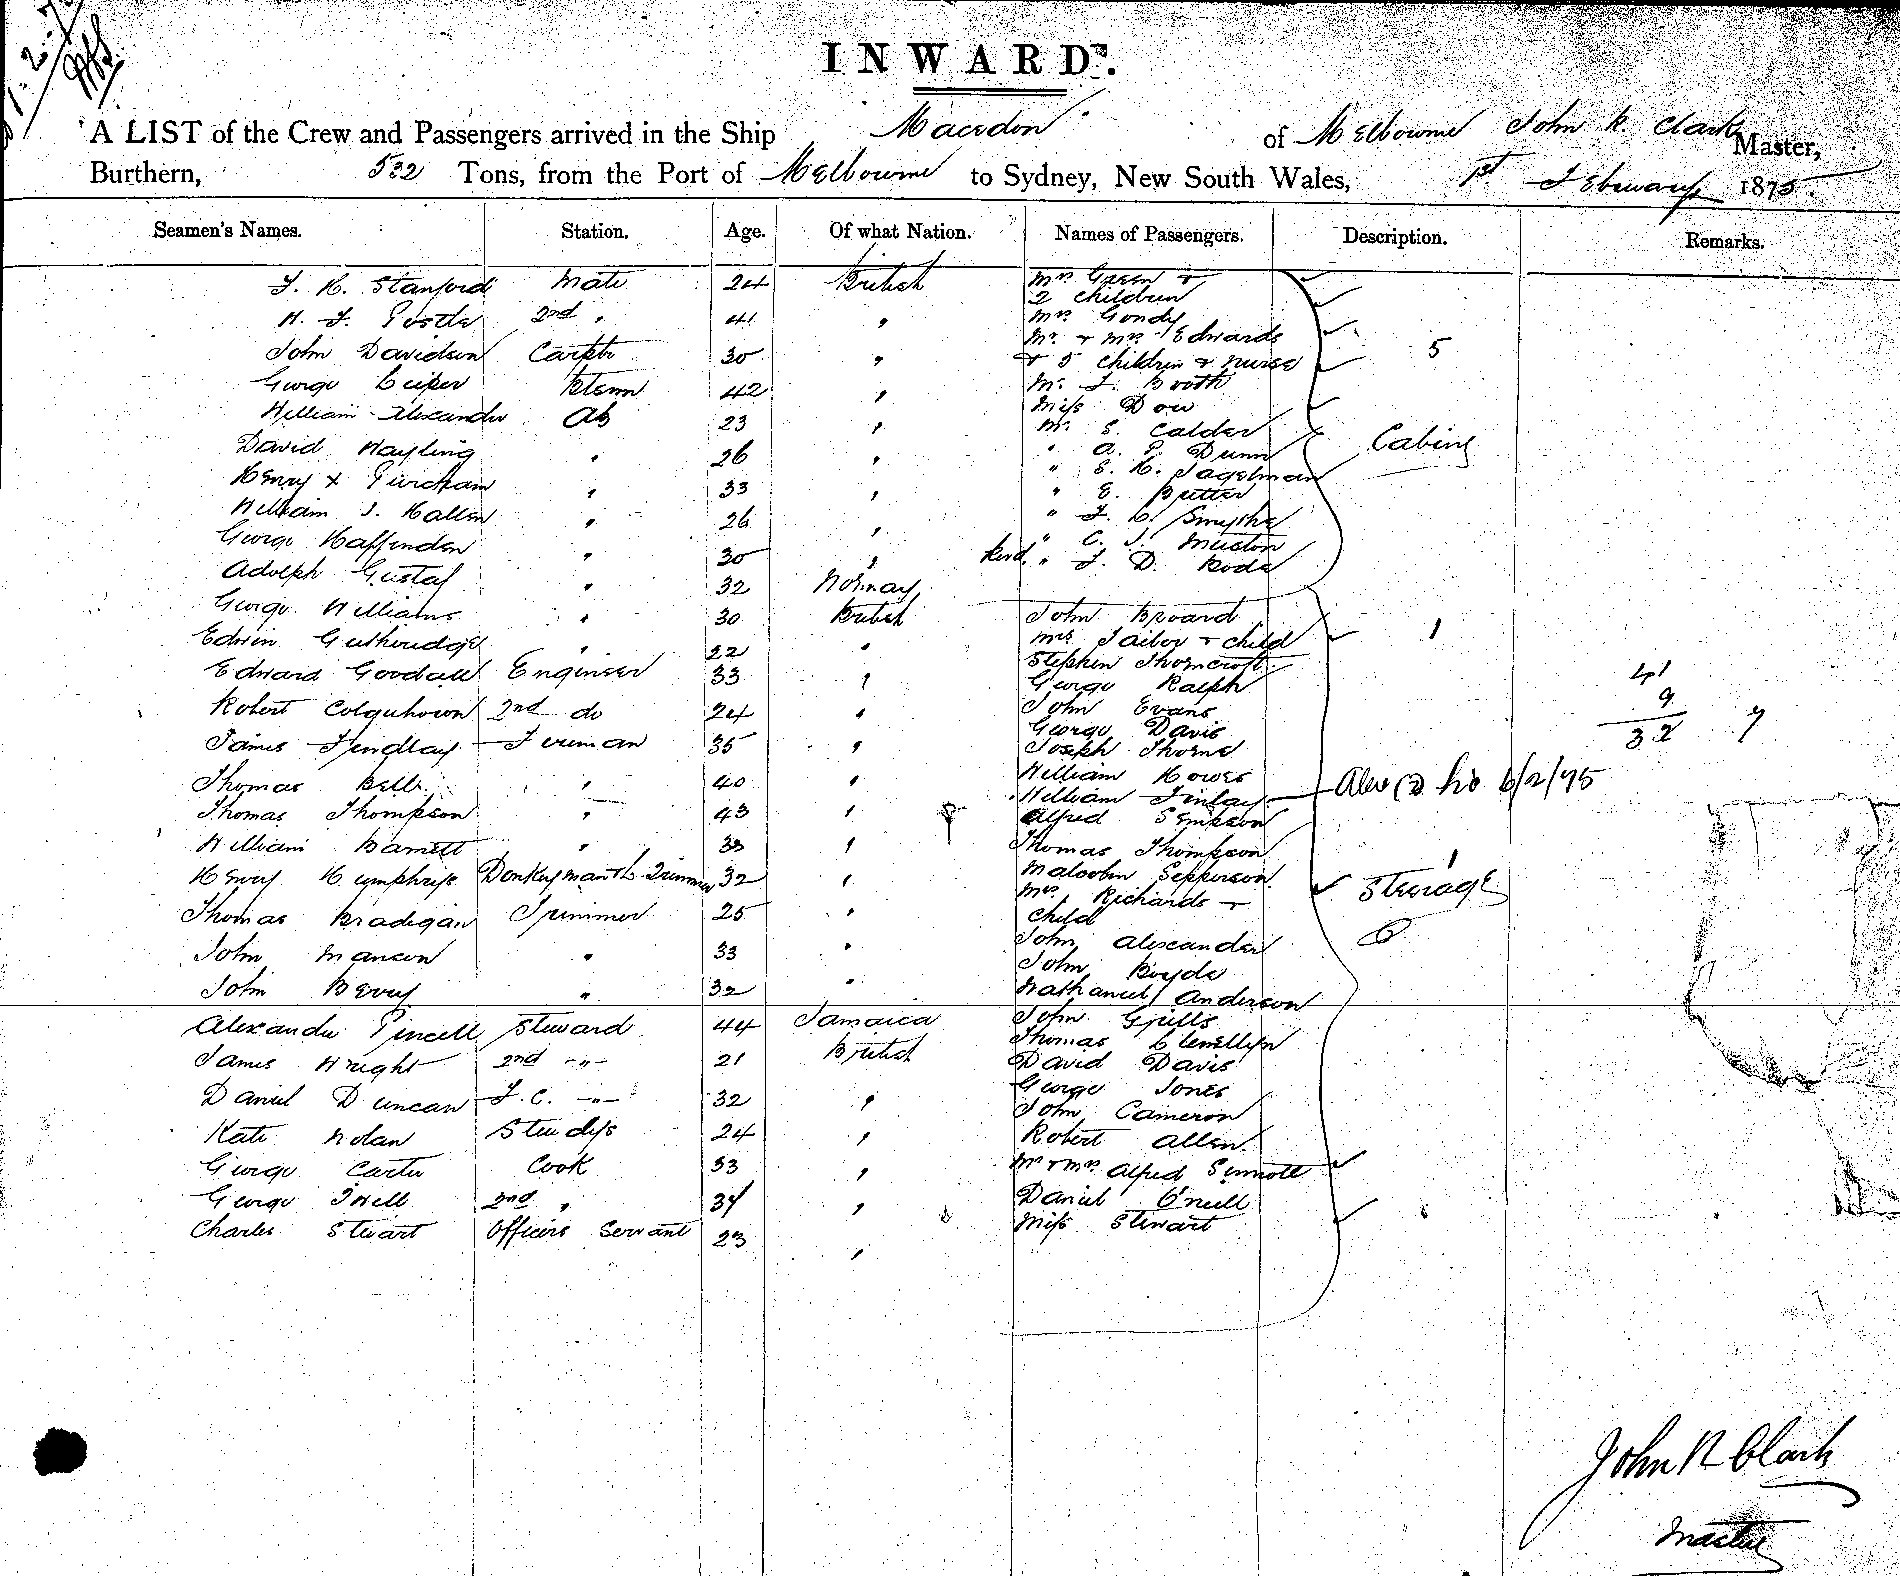 INWARD.
A LIST of the Crew and Passengers arrived in the Ship Macedon of Melbourne John R. Clark Master,
Burthern, 532 Tons, from the Port of Melbourne to Sydney, New South Wales, 1st February 1875.
Seamen's Names. Station. Age. Of what Nation. Names of Passengers. Description. Remarks.
J. H. Stanford Mate 24 British Mrs Green +
2 children
H. J. Postle 2nd " 41 " Mrs Gondy
Mr + Mrs Edwards
John Davidson Carptr 30 " + 5 children + nurse 5
George Leiper 42 " Mr J. Booth
William Alexander Ab 23 " Miss Dow
Mr S. Calder Cabin
David Hayling " 26 " " A. P. Dunn
" E. H. Tagelman
Henry + Purcham " 33 " " E. Butter
William J. Hallen " 26 " " J. C. Smythe
George Haffenden " 30 " " C. J. Muston
" J. D. Boda
Adolph Gustaf " 32 Norway
George Williams " 30 British John Broard
Edwin Gutheridge " 22 " Mrs Tailor + child 1
Stephen Thorncroft
Edward Goodall Engineer 33 " George Ralph
Robert Colquhoun 2nd do 24 " John Evans
George Davis
James Findlay Fireman 35 " Joseph Thorne
41
9
32 7
William Howes
Thomas Bell " 40 " William Finlay 6/2/75
Thomas Thompson " 43 " Alfred Simpson
William Barnett " 33 " Thomas Thompson
Henry Humphrys Donkeyman & Trimmer 32 " Malcolm Jepperson
Mrs Richards + Steerage
Thomas Bradigan Trimmer 25 " child
John Manson " 33 " John Alexander 6
John Boyde
John Berry " 32 " Nathaniel Anderson
Alexander Pincell Steward 44 Jamaica John Grills
Thomas Llewellyn
James Wright 2nd -"- 21 British David Davis
George Jones
Daniel Duncan F.C. -"- 32 " John Cameron
Kate Nolan Stewdss 24 " Robert Allen
George Carter Cook 33 " Mr + Mrs Alfred Sennott
George Twell 2nd " 34 " Daniel O'Neill
Charles Stewart Officers Servant 23 " Miss Stewart
John R Clark
Master